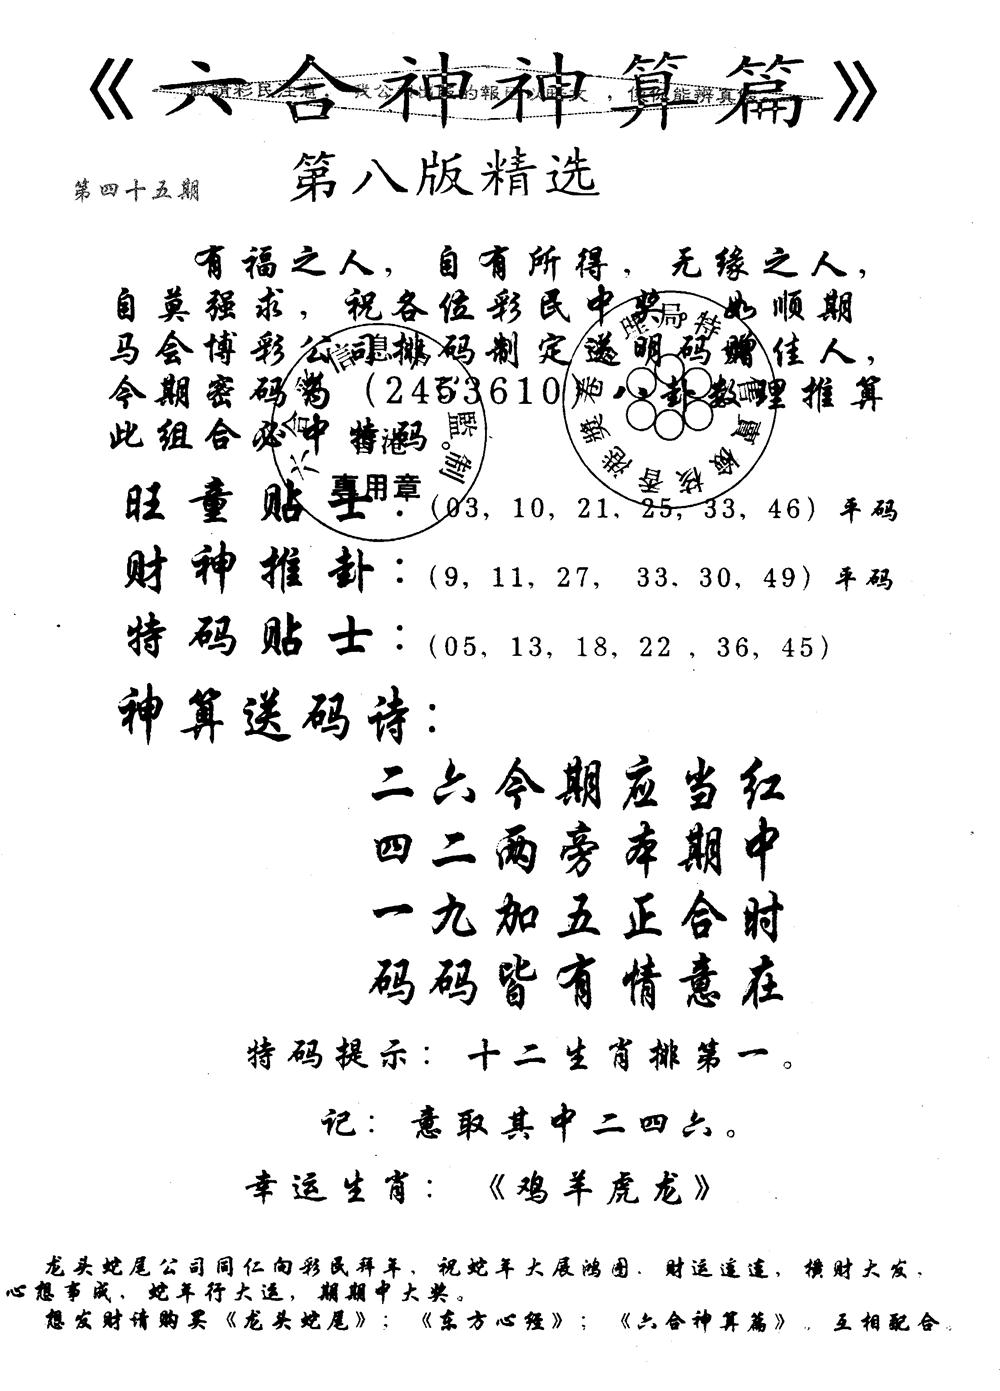 《六合神神算篇》
第八版精选
第四十五期
有福之人，自有所得，无缘之人，
自莫强求，祝各位彩民中奖 如顺期
马会博彩公司排码制定送明码赠佳人，
今期密码为（2453610 八卦数理推算
此组合必中特码
旺童贴士：(03, 10, 21, 25, 33, 46) 平码
财神推卦：(9, 11, 27, 33. 30, 49) 平码
特码贴士：(05, 13, 18, 22 , 36, 45)
神算送码诗：
二六今期应当红
四二两旁本期中
一九加五正合时
码码皆有情意在
特码提示：十二生肖排第一。
记：意取其中二四六。
幸运生肖：《鸡羊虎龙》
龙头蛇尾公司同仁向彩民拜年，祝蛇年大展鸿图．财运连连，横财大发．
心想事成．蛇年行大运，期期中大奖。
想发财请购买《龙头蛇尾》；《东方心经》；《六合神算篇》．互相配合．
香港
專用章
監制
香港獎券管理局特